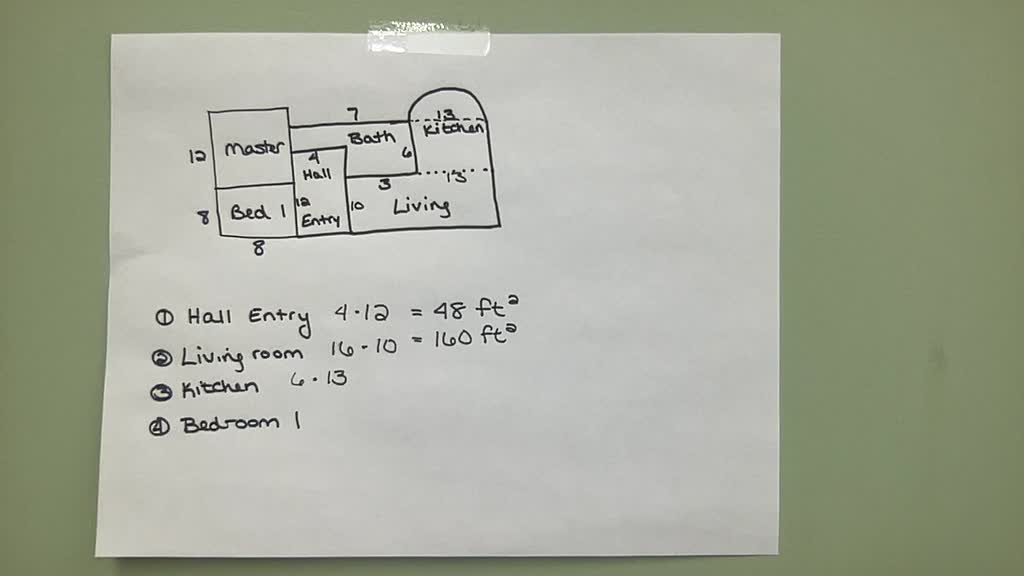 7
13
Kitchen
Bath
12 Master 4 6
Hall
3 13
8 Bed 1 12 10 Living
Entry
8
① Hall Entry 4·12 = 48 ft²
② Living room 16·10 = 160 ft²
③ Kitchen 6·13
④ Bedroom 1